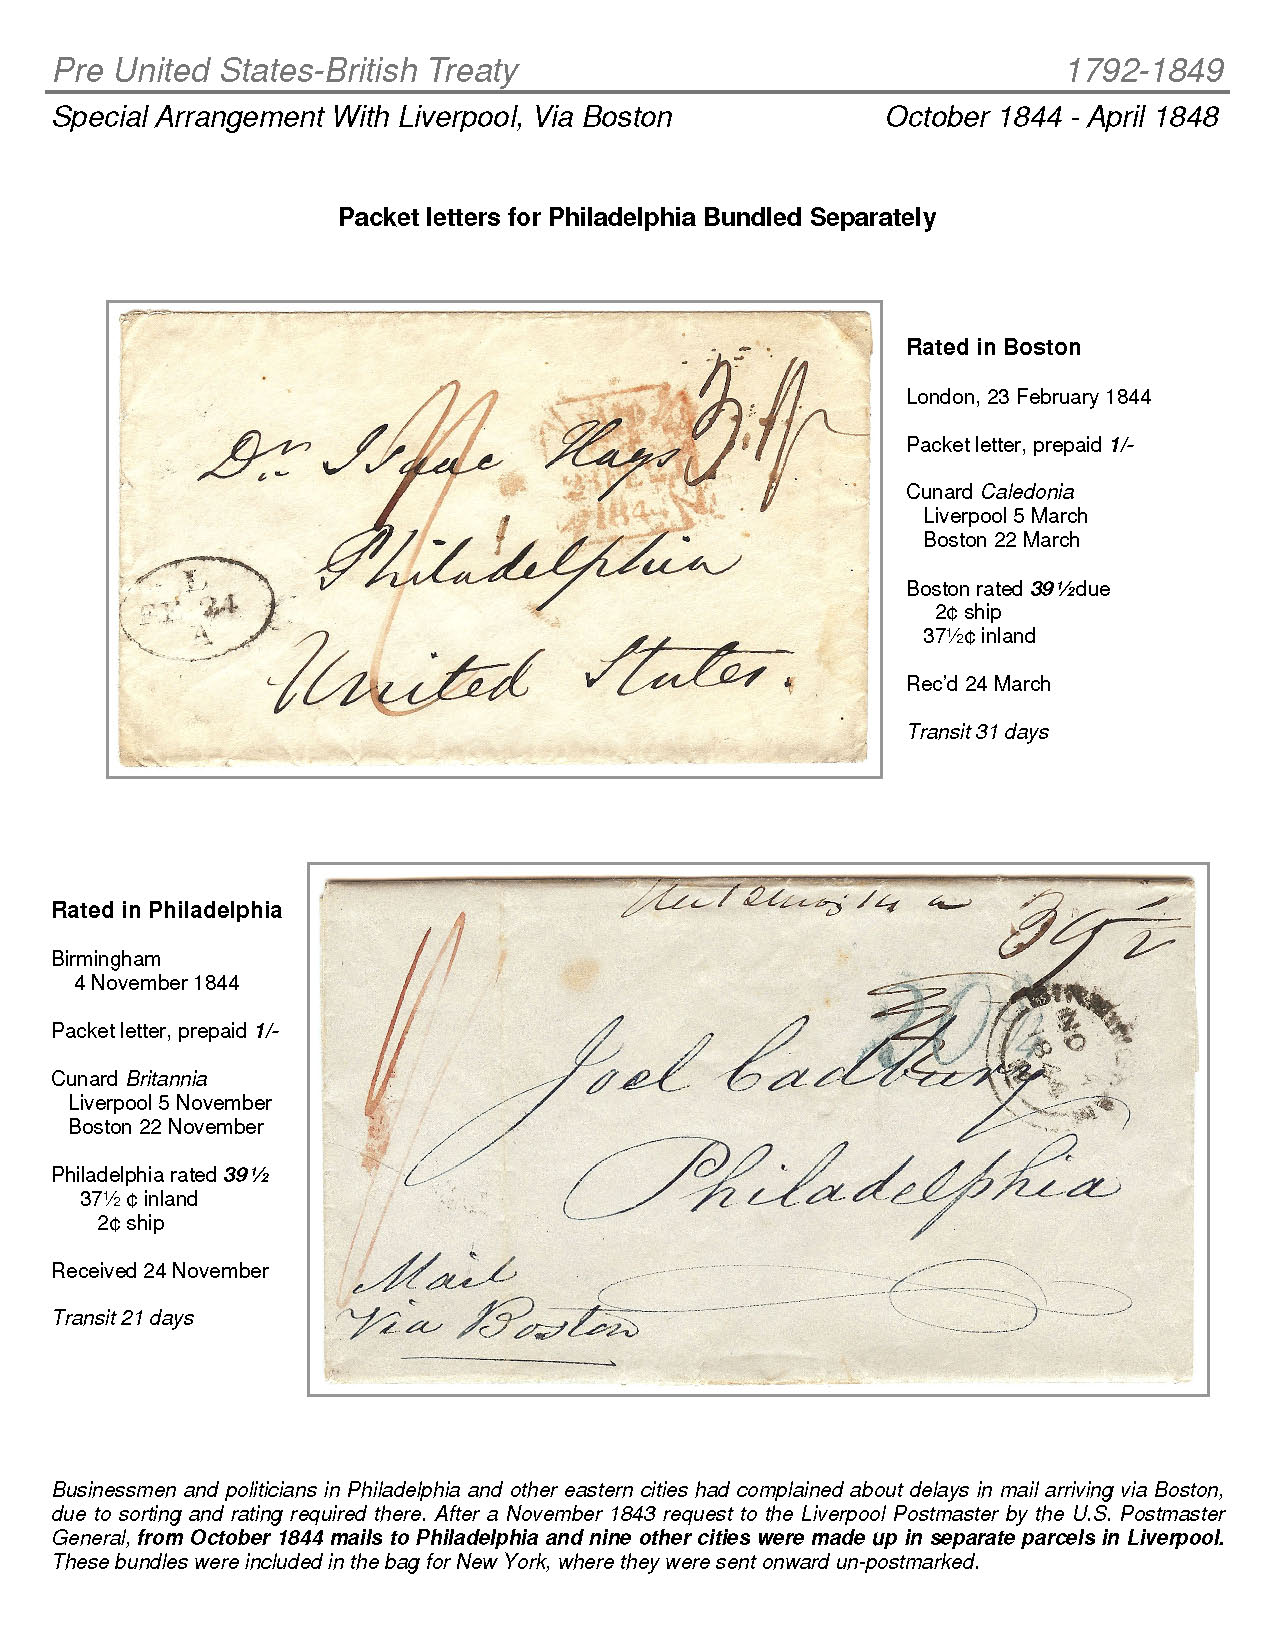 Pre United States-British Treaty 1792-1849
Special Arrangement With Liverpool, Via Boston October 1844 - April 1848
Packet letters for Philadelphia Bundled Separately
Dr. Isaac Hays
Philadelphia
United States.
L
24
A
Rated in Boston
London, 23 February 1844
Packet letter, prepaid 1/-
Cunard Caledonia
Liverpool 5 March
Boston 22 March
Boston rated 39½due
2¢ ship
37½¢ inland
Rec'd 24 March
Transit 31 days
Rated in Philadelphia
Birmingham
4 November 1844
Packet letter, prepaid 1/-
Cunard Britannia
Liverpool 5 November
Boston 22 November
Philadelphia rated 39½
37½ ¢ inland
2¢ ship
Received 24 November
Transit 21 days
39½
Joel Cadbury
Philadelphia
Mail
Via Boston
Businessmen and politicians in Philadelphia and other eastern cities had complained about delays in mail arriving via Boston,
due to sorting and rating required there. After a November 1843 request to the Liverpool Postmaster by the U.S. Postmaster
General, from October 1844 mails to Philadelphia and nine other cities were made up in separate parcels in Liverpool.
These bundles were included in the bag for New York, where they were sent onward un-postmarked.